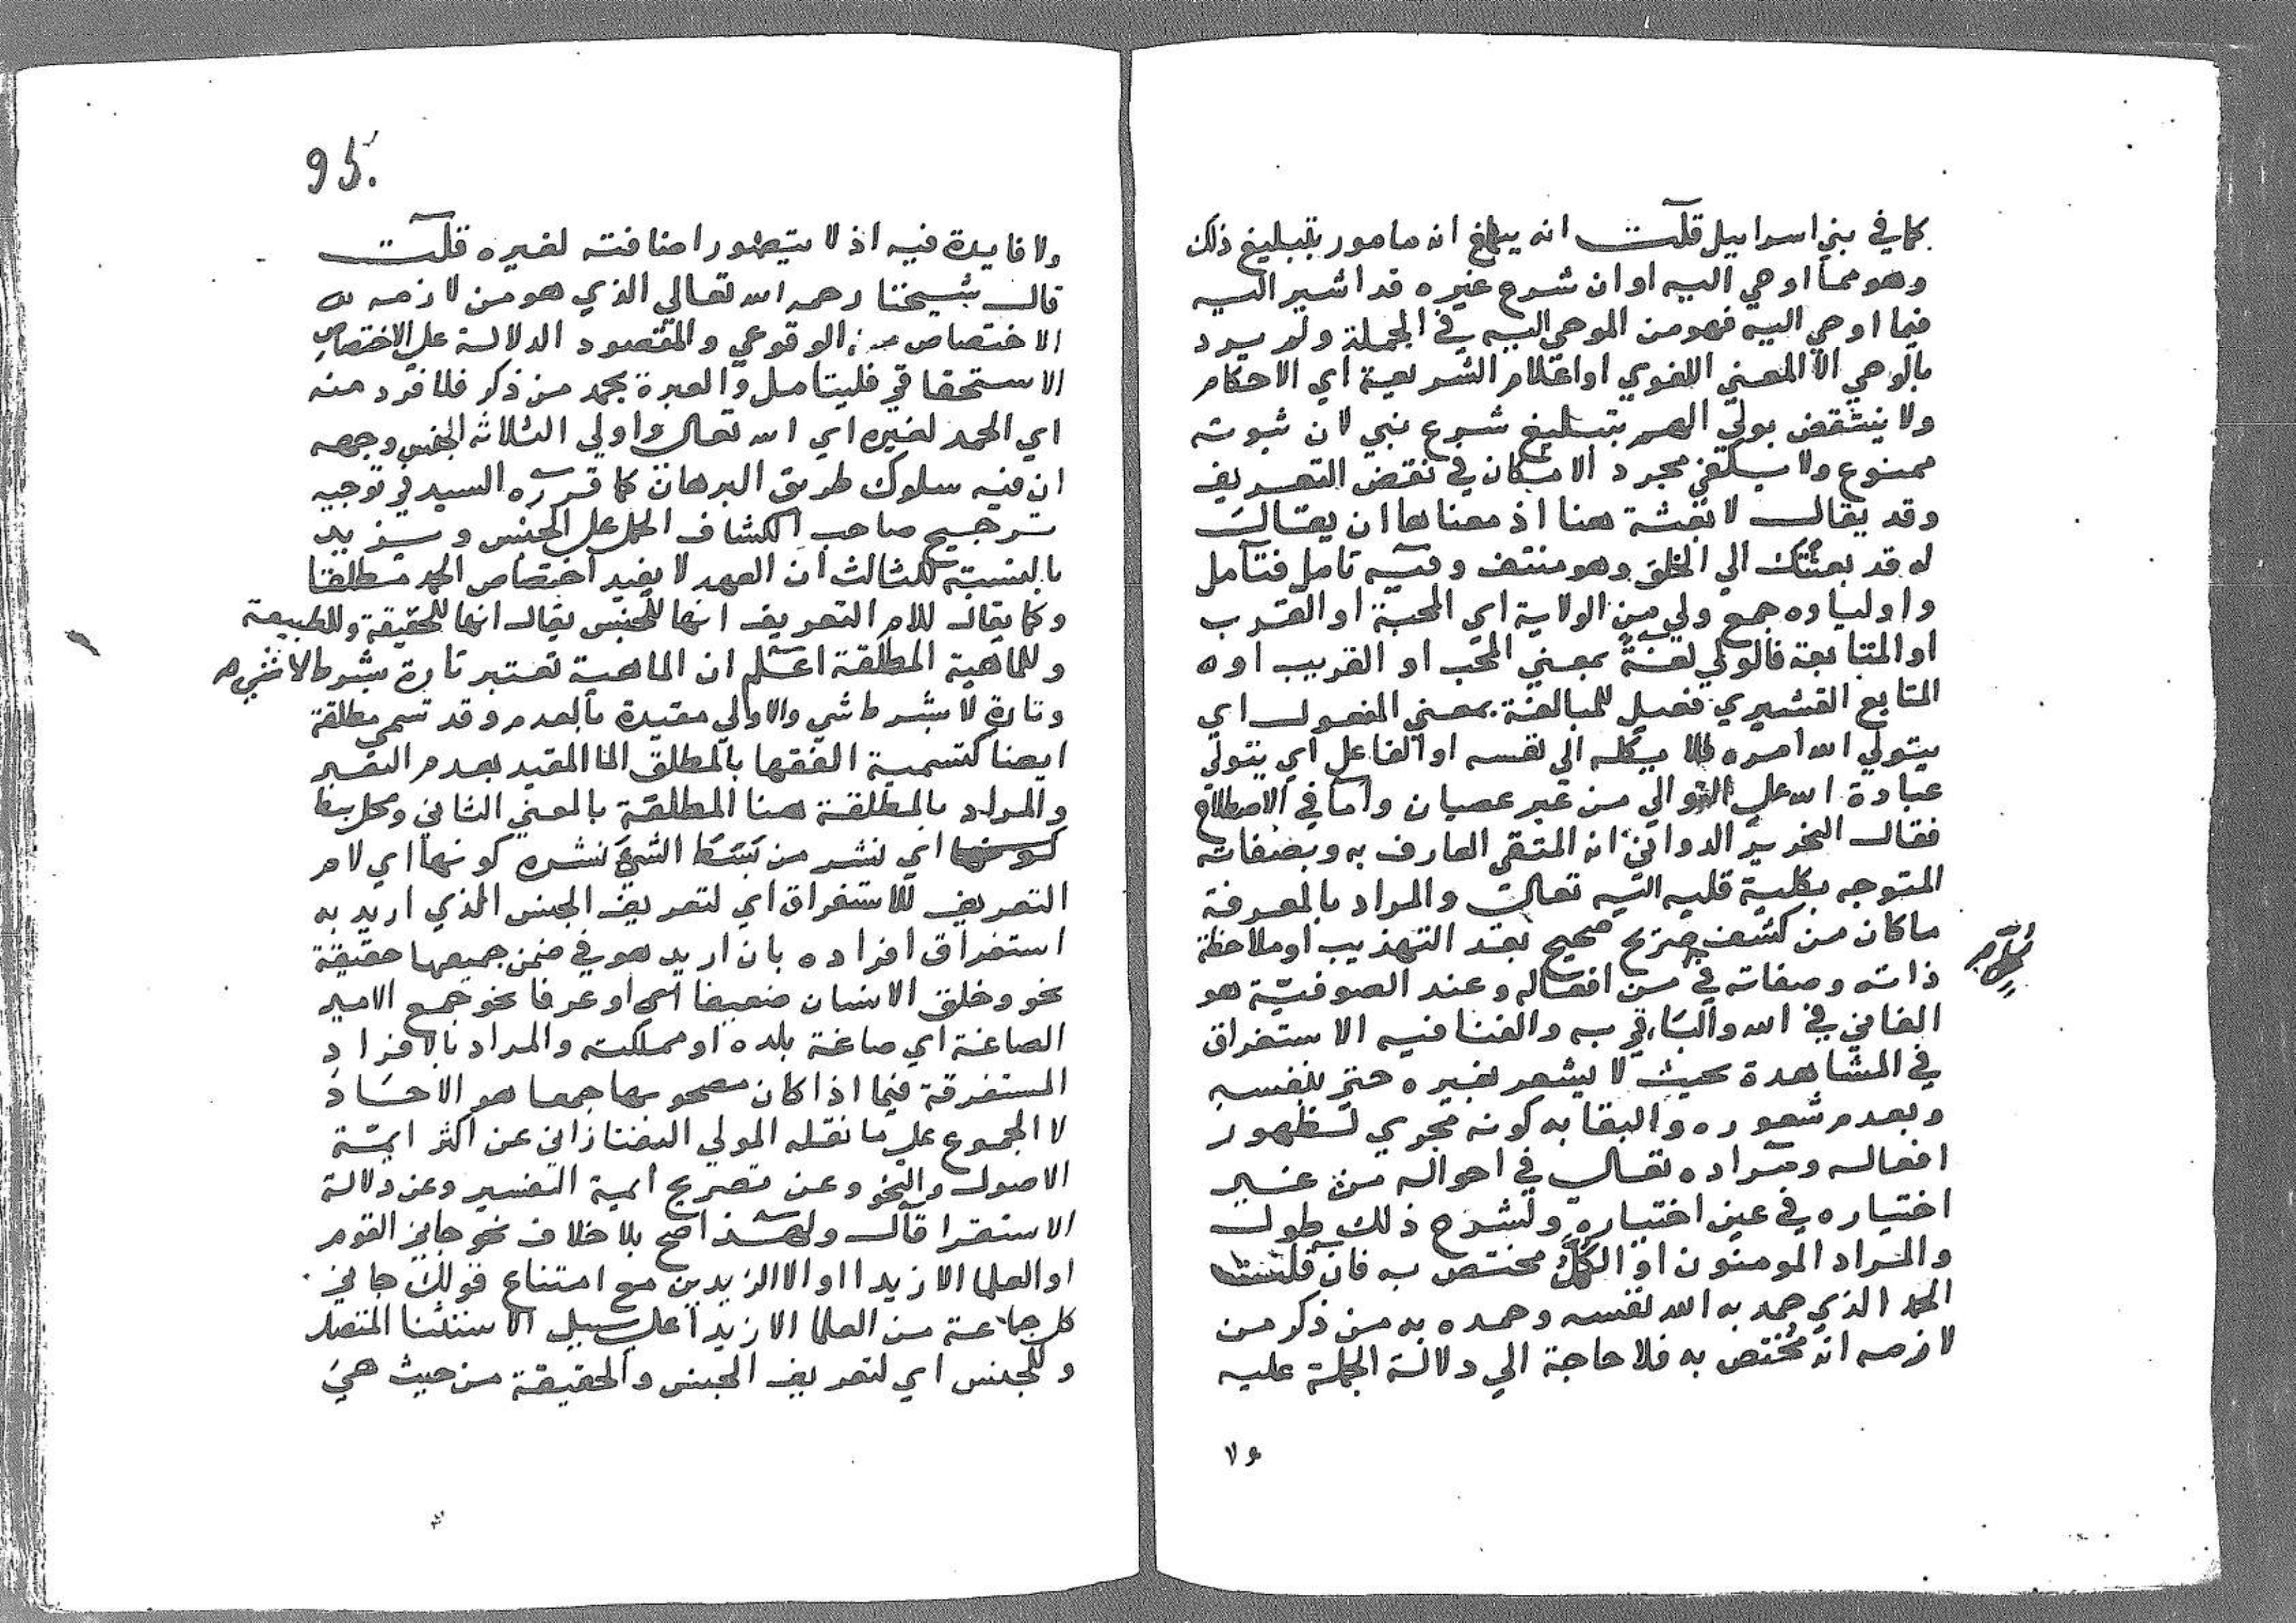 كما في بني اسراييل قلت انه يبلغ انه مامور بتبليغ ذلك
وهو مما اوحي اليه او ان شرع غيره قد اشير اليه
فيما اوحي اليه فهو من الموحي اليه في الجملة ولم يرد
بالوحي الا المعني اللغوي او اعلام الشريعة اي الاحكام
ولا ينتقض بولي الهم بتبليغ شرع نبي لان ثبوته
ممنوع ولا يكفي مجرد الامكان في نقض التعريف
وقد يقال لا بعثة هنا اذ معناها ان يقال
له قد بعثتك الي الخلق وهو منتف وفيه تامل فتامل
واولياوه جمع ولي من الولاية اي المحبة او القرب
او المتابعة فالولي لغة بمعني المحب او القريب او
المتابع القشيري فعيل للمبالغة بمعني المفعول اي
يتولي الله امره فلا يكله الي نفسه او الفاعل اي يتولي
عبادة الله علي التوالي من غير عصيان واما في الاصطلاح
فقال النحرير الدواني انه المتقي العارف به وبصفاته
المتوجه بكلية قلبه اليه تعالي والمراد بالمعرفة
ماكان من كشف صريح صحيح بعد التهذيب او ملاحظة
ذاته وصفاته في من افعاله وعند الصوفية هو
الفاني في الله والباقي به والفنا فيه الاستغراق
في المشاهدة بحيث لا يشعر بغيره حتي بنفسه
وبعدم شعوره والبقا به كونه مجري لظهور
افعاله ومراده تعالي في احواله من غير
اختياره في عين اختياره ولشرح ذلك طول
والمراد المومنون او الكل مختص به فان قلت
الحمد الذي حمد به الله نفسه وحمده به من ذكر من
لازمه انه مختص به فلا حاجة الي دلالة الجملة عليه
95.
ولا فايدة فيه اذ لا يتصور اضافته لغيره قلت
قال شيخنا رحمه الله تعالي الذي هو من لازمه
الاختصاص الوقوعي والمقصود الدلالة علي الاختصاص
الاستحقاقي فليتامل والعبرة بحمد من ذكر فلا فرد منه
اي الحمد لغيره اي الله تعالي واولي الثلاثه الجنس وجهه
ان فيه سلوك طريق البرهان كما قرره السيد في توجيه
ترجيح صاحب الكشاف الحمل علي الجنس ونزيد
بالنسبة للثالث ان العهد لا يفيد اختصاص الحمد مطلقا
وكما يقال للام التعريف انها للجنس يقال انها للحقيقة وللطبيعة
وللماهية المطلقة اعلم ان الماهية تعتبر تارة بشرط لا شي
وتارة لا بشرط شي والاولي مقيدة بالعدم وقد تسمي مطلقة
ايضا كتسمية الفقها بالمطلق الما المقيد بعدم التغير
والمراد بالمطلقة هنا المطلقة بالمعني الثاني
اي نشر من بسط الشي نشره كونها اي لام
التعريف للاستغراق اي لتعريف الجنس الذي اريد به
استغراق افراده بان اريد هو في ضمن جميعها حقيقة
نحو وخلق الانسان ضعيفا اي او عرفا نحو جمع الامير
الصاغة اي صاغة بلده او مملكته والمراد بالافراد
المستغرقة فيما اذا كان مصحوبها جمعا هو الاحاد
لا المجموع علي ما نقله المولي التفتازاني عن اكثر ايمة
الاصول والنحو وعن تصريح ايمة التفسير وعن دلالة
الاستقرا قال ولهذا صح بلا خلاف نحو جاني القوم
او العلما الا زيدا او الا الزيدين مع امتناع قولك جاني
كل جماعة من العلما الا زيدا علي سبيل الاستثنا المتصل
وللجنس اي لتعريف الجنس والحقيقة من حيث هي